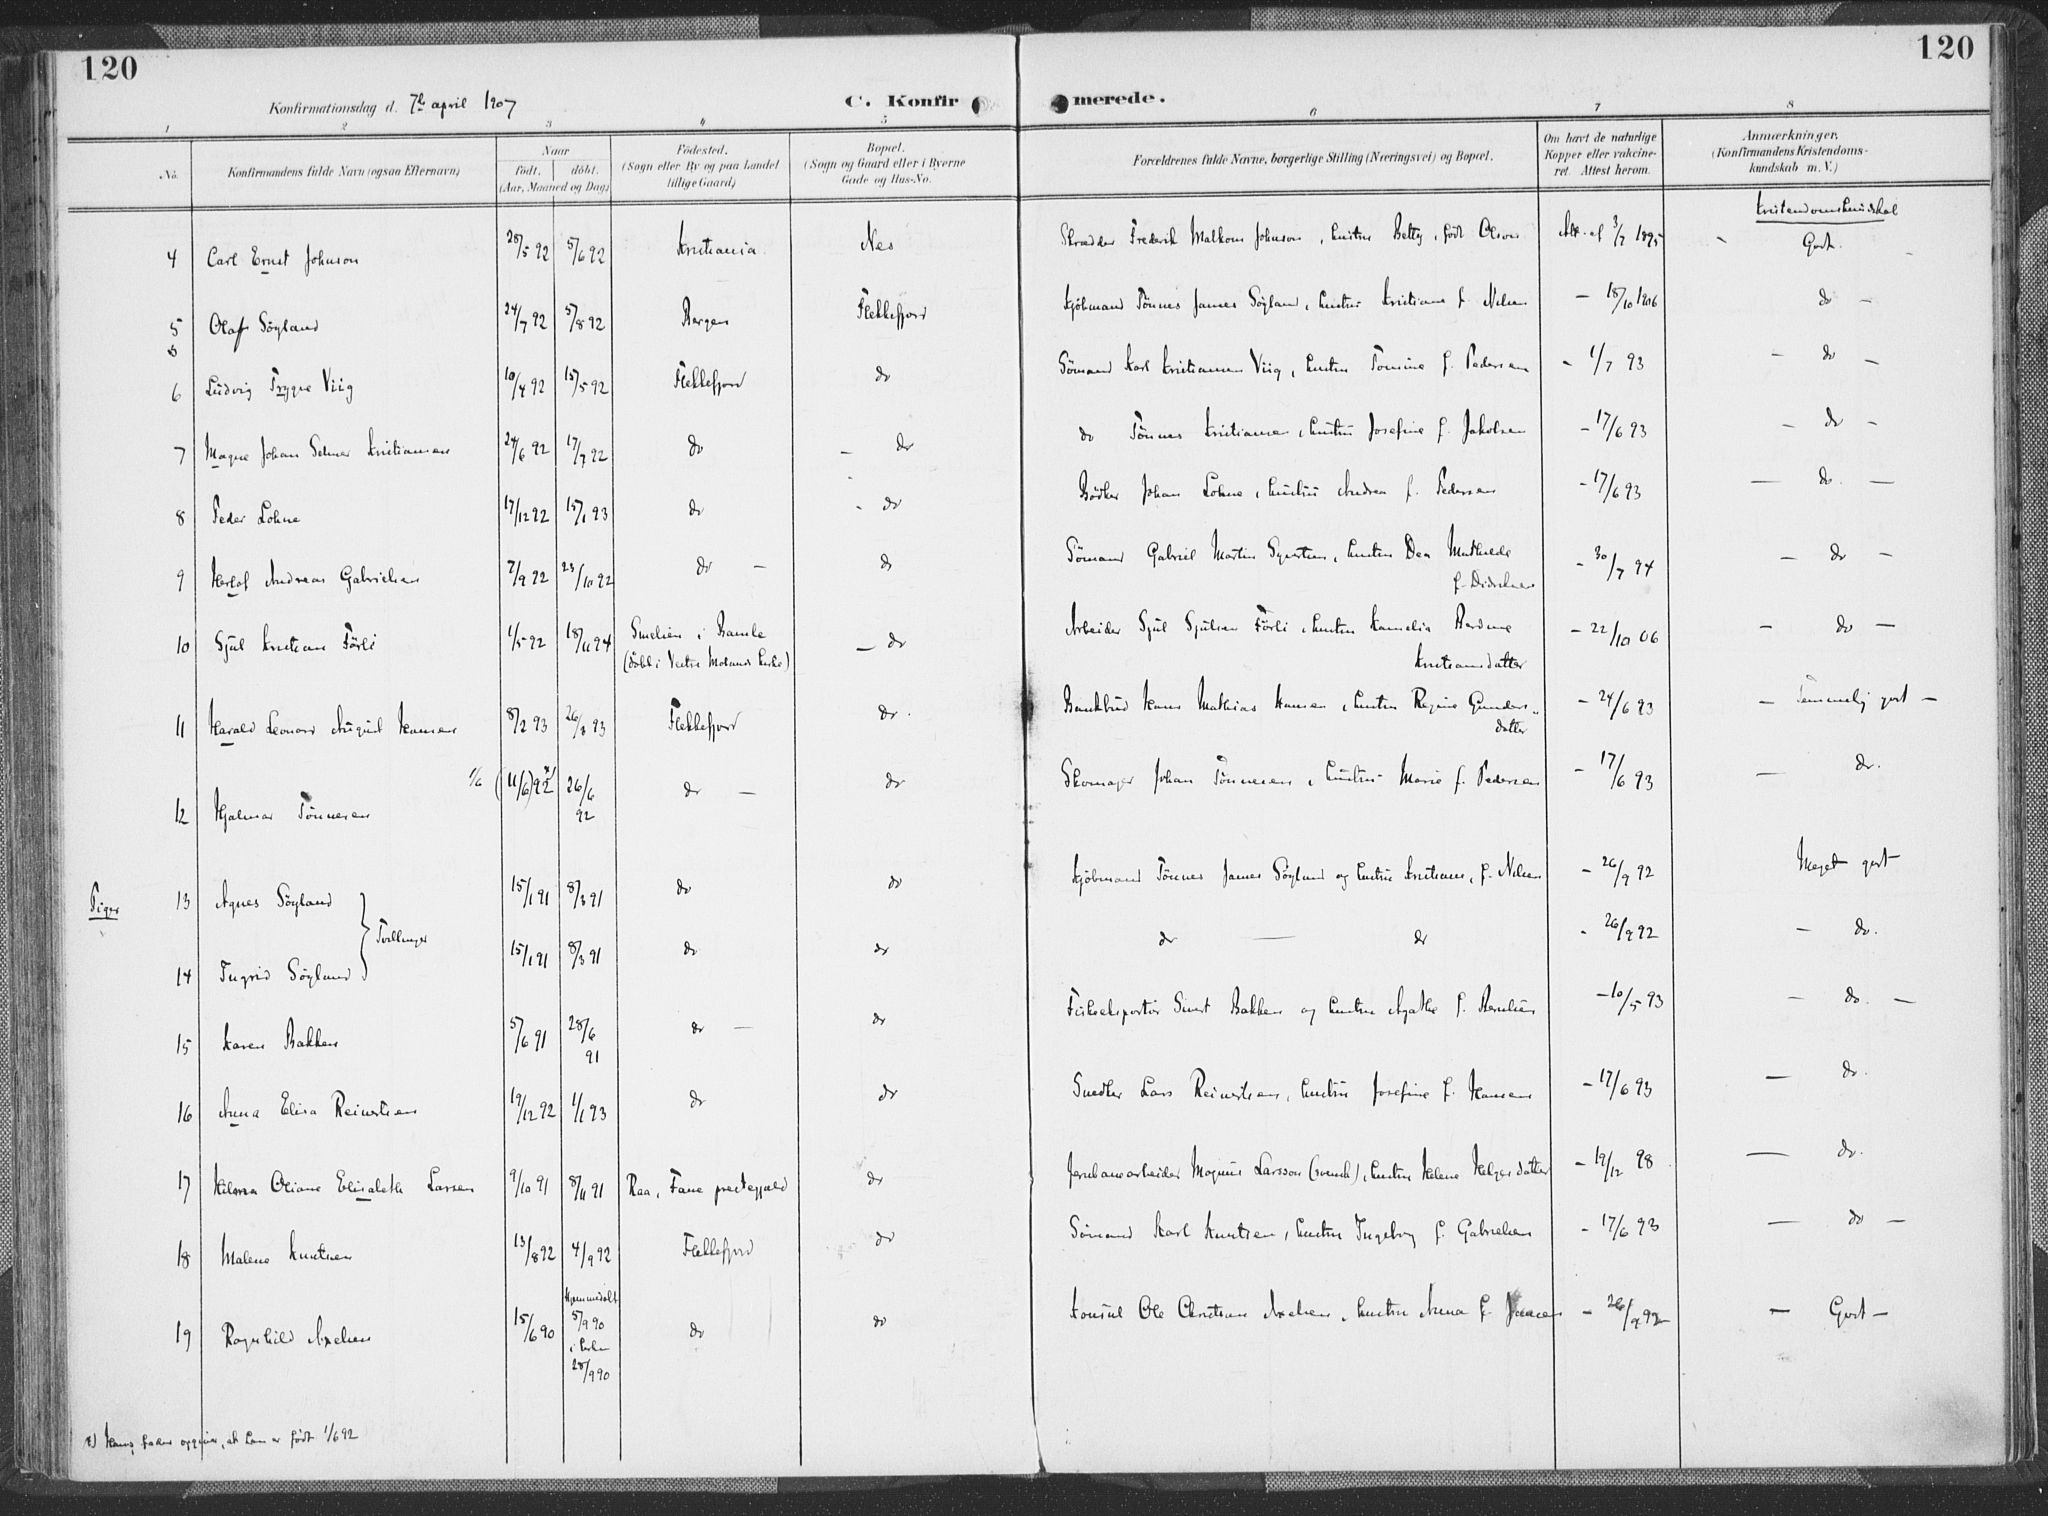 120
120
Konfirmationsdag d. 7de april 1907
C. Konfirmerede.
1 2 3 4 5 6 7 8
No. Konfirmandens fulde Navn (ogsaa Efternavn)
Naar födt. döbt. (Aar, Maaned og Dag)
Födested. (Sogn eller By og paa Landet tillige Gaard)
Bopæl. (Sogn og Gaard eller i Byerne Gade og Hus-No.
Forældrenes fulde Navne, borgerlige Stilling (Næringsvei) og Bopæl.
Om havt de naturlige Kopper eller vakcineret. Attest herom.
Anmærkninger. (Konfirmandens Kristendomskundskab m. V.)
Kristendomskundskab
4 Carl Ernst Johnson 28/5 92 5/6 92 Kristiania Nes Skrædder Frederik Malkom Johnson, hustru Betty, født Olsen Att. af 3/7 1895 Godt.
5 Olaf Söyland 24/7 92 5/8 92 Bergen Flekkefjord Kjöbmand Tönnes James Söyland, hustru Kristiane f. Nilsen - 18/10 1906 do -
6 Ludvig Trygve Viig 10/4 92 15/5 92 Flekkefjord do Sömand Karl Kristiansen Viig, hustru Tomine f. Pedersen - 1/7 93 - do -
7 Magne Johan Selmer Kristiansen 24/6 92 17/7 92 do - do do Tönnes Kristiansen, hustru Josefine f. Jakobsen - 17/6 93 - do -
8 Peder Lohne 17/12 92 15/1 93 do - do Bödker Johan Lohne, hustru Andrea f. Pedersen - 17/6 93 - do. -
9 Herlof Andreas Gabrielsen 7/9 92 23/10 92 do - do Sömand Gabriel Martin Syvertsen, hustru Dea Mathilde f. Didriksen - 30/7 94 - do -
10 Sjul Kristian Förli 1/5 92 18/11 94 Smelien i Bamle (döbt i Vestre Molands kirke) - do Arbeider Sjul Sjulsen Förli, hustru Kamelia Berdine Kristiansdatter - 22/10 06 - do -
11 Harald Leonard August Hansen 8/2 93 26/3 93 Flekkefjord do. Bankbud Hans Mathias Hansen, hustru Regine Gundersdatter - 24/6 93 - Temmelig godt -
12 Hjalmar Tönnesen 1/6 (11/6) 92 x) 26/6 92 do - do Skomager Johan Tönnesen, hustru Marie f. Pedersen - 17/6 93 - do.
Piger
13 Agnes Söyland 15/1 91 8/3 91 do do Kjöbmand Tönnes James Söyland og hustru Kristiane, f. Nilsen - 26/9 92 Meget godt
Tvillinger
14 Ingrid Söyland 15/1 91 8/3 91 do do do - do - 26/9 92 - do.
15 Karen Bakken 5/6 91 28/6 91 do - do Fiskeeksportör Sivert Bakken og hustru Agathe f. Berntsen - 10/5 93 - do. -
16 Anna Elisa Reinertsen 19/12 92 1/1 93 do do Snedker Lars Reinertsen, hustru Josefine f. Hansen - 17/6 93 - do.
17 Helma Oliane Elisabeth Larsen 9/10 91 8/11 91 Raa, Fane prestegjeld do Jernbanearbeider Magnus Larsson (svensk), hustru Helene Helgesdatter - 19/12 98 - do.
18 Malene Knutsen 13/8 92 4/9 92 Flekkefjord do Sömand Karl Knutsen, hustru Ingeborg f. Gabrielsen - 17/6 93 - do -
19 Ragnhild Axelsen 15/6 90 Hjemmedöbt 5/9 90 i kirken 28/9 90 do do Konsul Ole Christian Axelsen, hustru Anna f. Jansen - 26/9 92 - Godt -
x) Hans fader opgiver, at han er födt 1/6 92